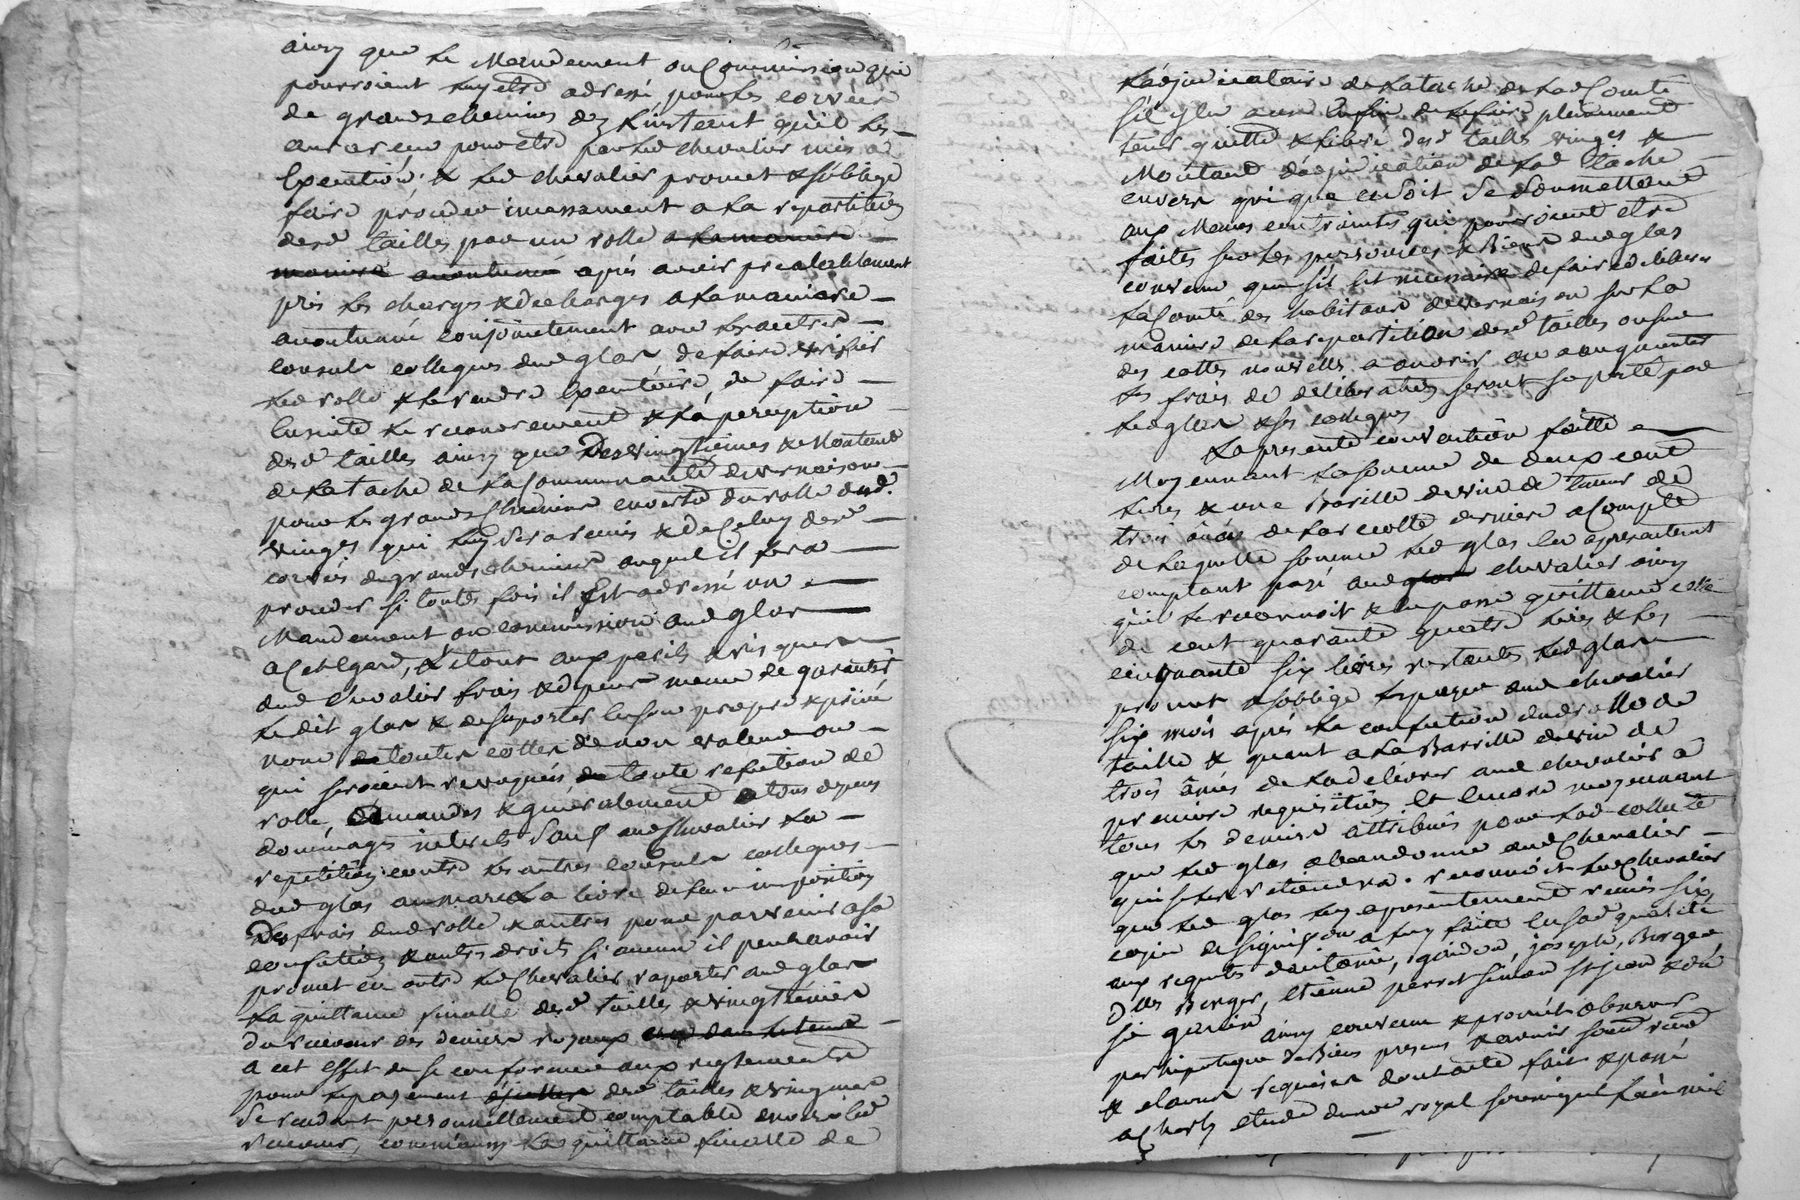 ainsy que le Mandement ou Commission qui
pourroient luy etre adressé pour les corvées
de grands chemins dez l'instant qu'il les
aura receu pour etre par led chevalier mis a
Execution, & led chevalier promet & s'oblige
faire procéder incessament a la repartition
desd tailles par un rolle a la maniere
maniere accoutumé aprés avoir prealablement
pris les charges & décharges a la maniere
accoutumé conjointement avec les autres
consuls collegues dud glas de faire vérifier
led rolle & le rendre Exécutoire, de faire
Ensuitte le recouvrement & la perception
desd tailles ainsy que Des vingtiémes & Montant
de la tache de la Communauté de vernaison
pour les grands Chemins en vertu du rolle dud.
vingt.es qui luy sera remis & de Celuy des
corvées de grands chemins auquel il fera
proceder si toutes fois il Est adressé un
Mandement ou commission aud glas
a Cet Egard, & le tout aux perils & risques
dud Chevalier frais & dépens meme de garantir
ledit glas & de suporter En son propre & privé
nom de toutes cottes de non valeur ou
qui seroient revoquées de toute refection de
rolle, demandes & generalement de tous depens
dommages interets Sauf aud Chevalier la
repetition contre les autres consuls collegues
dud glas au marc la livre de leur imposition
Des frais dud rolle & autres pour parvenir a sa
confection & autres droits si aucun il peut avoir
promet en outre led Chevalier raporter aud glas
la quittance finalle desd tailles & vingtiémes
du receveur des deniers royaux
a cet effet de se conformer aux reglements
pour le payement desd tailles & vingmes
Se rendant personnellement comptable envers led
receveur, comme aussy la quittance finalle de
L'adjudicataire de la tache de lad Comté
s'il y En a un pleinement
tenir quitte & libéré desd tailles vingt.es &
Montant d'adjudication de lad tâche
envers qui que ce soit Se Soumettant
aux Memes contraintes qui pourroient etre
faites sur les personnes & Biens dud glas
convenu que s'il est necessaire de faire déliberer
la Comté des habitans de vernaison sur la
maniere de la repartition desd tailles ou sur
des cottes nouvelles a ouvrir ou a augmenter
les frais de déliberation seront suporté par
led glas & ses collegues
La presente convention faitte
Moyennant la somme de deux cent
livres & une Barille de vin de teneur de
trois ânées de la recolte derniere a Compte
de laquelle somme led glas En a presentement
comptant payé aud chevalier ainsy
qu'il le reconnoit & en passe quittance celle
de cent quarante quatre livres & les
cinquante six livres restantes led glas
promet & s'oblige les payer aud chevalier
six mois aprés la confection dud rolle de
taille & quant a la Barrille de vin de
trois ânées de la délivrer aud chevalier a
premiere requisition Et Encore moyennant
tous les deniers attribués pour lad collecte
que led glas abandonne aud Chevalier
qui se les retiendra. reconnoit led Chevalier
que led glas luy a presentement remis six
copie de signif.on a luy faite En sad qualité
aux requetes d'antoine, joseph, Berger
Etienne perret simon st jean & du
sr ainsy convenu & promis observer
par hipoteque des Biens presens & avenir soumis
& clauses requises dont acte fait & passé
a Charly etude du nore royal soussigné L'an mil